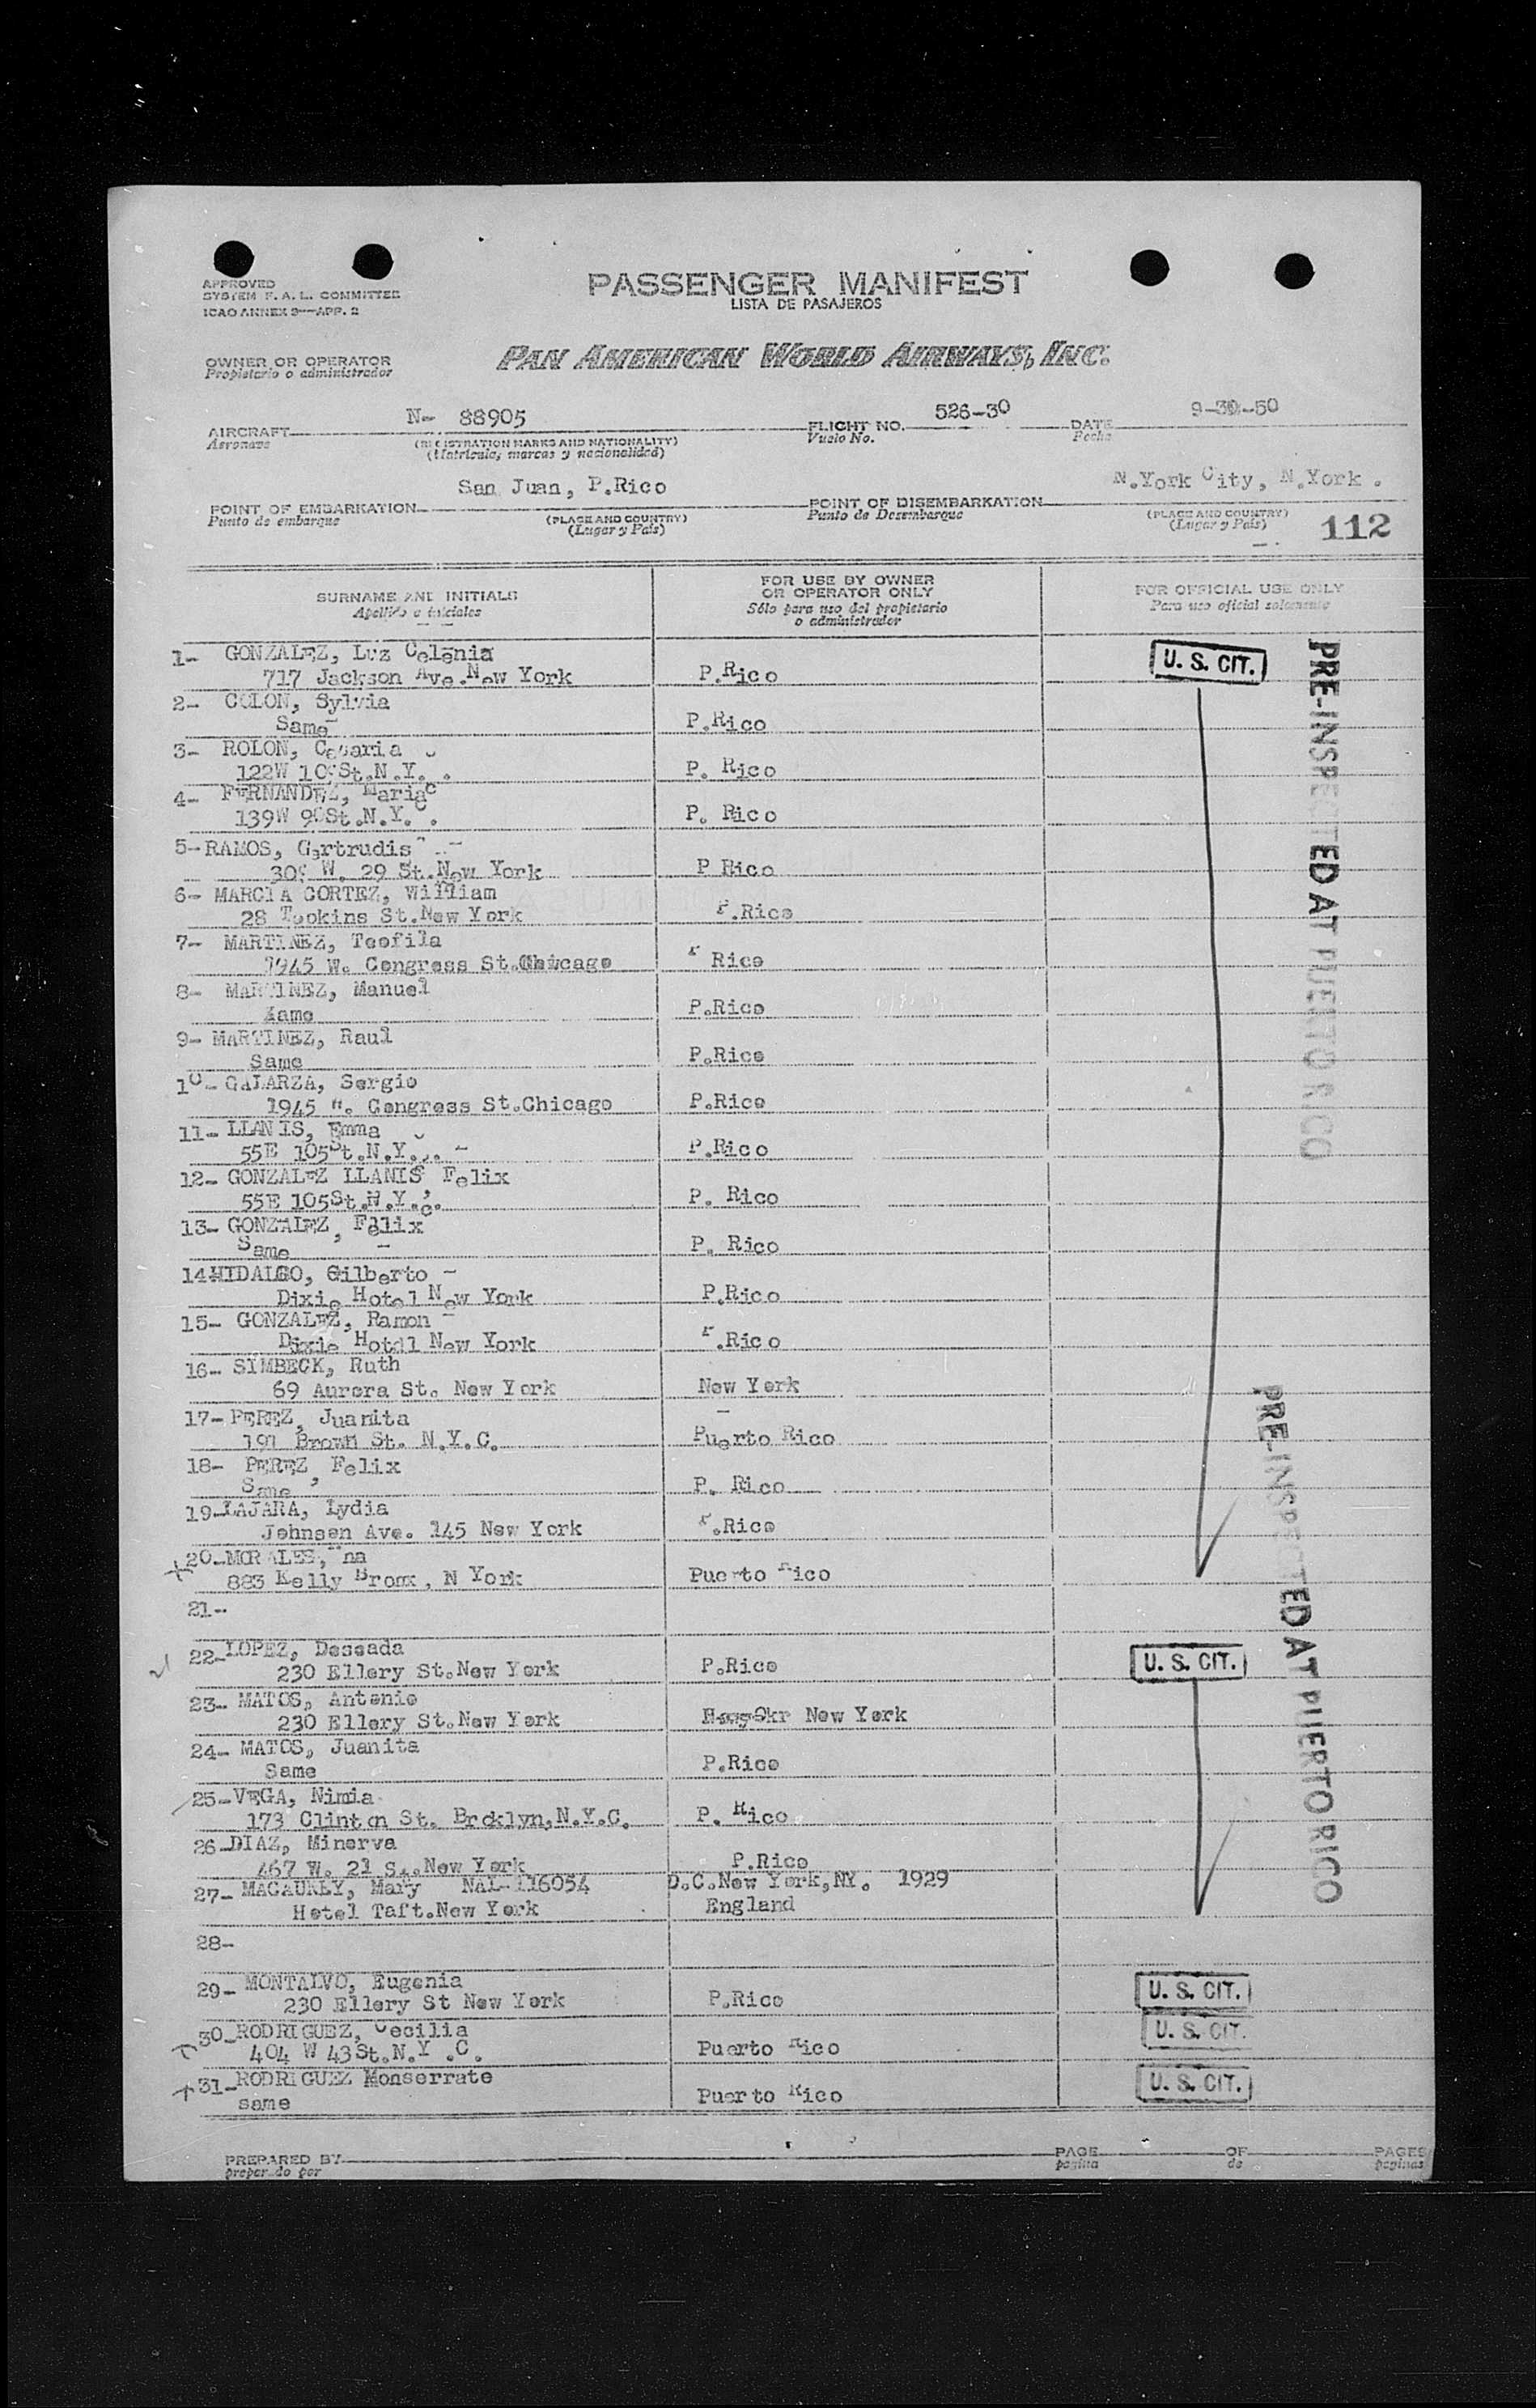 APPROVED
SYSTEM F. A. L. COMMITTEE
ICAO ANNEX 9—APP. 2
PASSENGER MANIFEST
LISTA DE PASAJEROS
OWNER OR OPERATOR
Propietario o administrador
PAN AMERICAN WORLD AIRWAYS, INC.
AIRCRAFT N- 88905 FLIGHT NO. 526-30 DATE 9-30-50
Aeronave (REGISTRATION MARKS AND NATIONALITY) Vuelo No. Fecha
(Matricula, marcas y nacionalidad)
POINT OF EMBARKATION San Juan, P.Rico POINT OF DISEMBARKATION N.York City, N.York .
Punto de embarque (PLACE AND COUNTRY) Punto de Desembarque (PLACE AND COUNTRY)
(Lugar y Pais) (Lugar y Pais) 112
SURNAME AND INITIALS FOR USE BY OWNER OR OPERATOR ONLY FOR OFFICIAL USE ONLY
Apellido e iniciales Sólo para uso del propietario o administrador Para uso oficial solamente
1- GONZALEZ, Luz Celenia U. S. CIT.
717 Jackson Ave.New York P.Rico
2- COLON, Sylvia
Same P.Rico
3- ROLON,
122W St.N.Y. P. Rico
4- FERNANDEZ, Maria
139W St.N.Y. P. Rico
5- RAMOS, Gertrudis
W. 29 St.New York P Rico
6- MARCIA CORTEZ, William
28 St.New York P.Rico
7- MARTINEZ, Teofila
1945 W. Congress St.Chicago Rico
8- MARTINEZ, Manuel
Same P.Rico
9- MARTINEZ, Raul
Same P.Rico
10- GALARZA, Sergio
1945 W. Congress St.Chicago P.Rico
11- LLANIS, Emma
55E 105St.N.Y. P.Rico
12- GONZALEZ LLANIS, Felix
55E 105St.N.Y.C. P. Rico
13- GONZALEZ, Felix
Same P. Rico
14- HIDALGO, Gilberto -
Dixie Hotel New York P.Rico
15- GONZALEZ, Ramon -
Dixie Hotel New York P.Rico
16- SIMBECK, Ruth
69 Aurora St. New York New York
17- PEREZ, Juanita
191 Brown St. N.Y.C. Puerto Rico
18- PEREZ, Felix
Same P. Rico
19- LAJARA, Lydia
Johnson Ave. 145 New York P.Rico
20- MORALES, Ana
883 Kelly Bronx, N York Puerto Rico
21-
22- LOPEZ, Deseada U. S. CIT.
230 Ellery St.New York P.Rico
23- MATOS, Antonio
230 Ellery St.New York New York
24- MATOS, Juanita
Same P.Rico
25- VEGA, Nimia
173 Clinton St. Brcklyn,N.Y.C. P. Rico
26- DIAZ, Minerva
467 W. 21 St.New York P.Rico
27- MACAULEY, Mary NAL-116054 D.C.New York,NY. 1929
Hotel Taft.New York England
28-
29- MONTALVO, Eugenia U. S. CIT.
230 Ellery St New York P.Rico
30- RODRIGUEZ, Cecilia U. S. CIT.
404 W 43St.N.Y .C. Puerto Rico
31- RODRIGUEZ Monserrate U. S. CIT.
same Puerto Rico
PRE-INSPECTED AT PUERTO RICO
PRE-INSPECTED AT PUERTO RICO
PREPARED BY PAGE OF PAGES
preparado por pagina de paginas